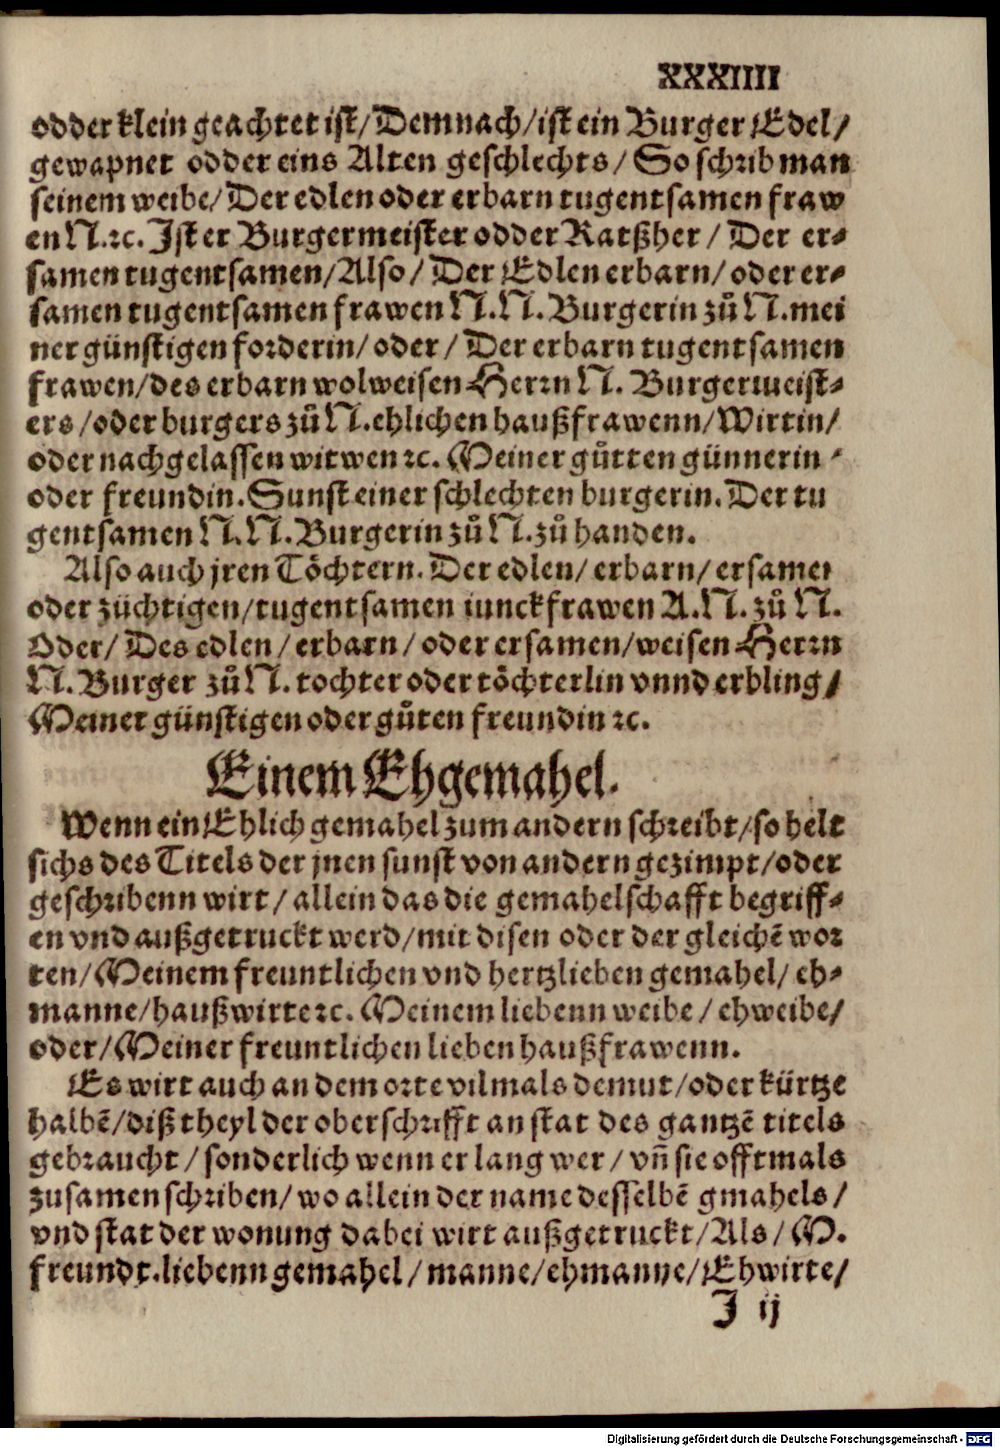 XXXIIII
odder klein geachtet ist/Demnach/ist ein Burger Edel/
gewapnet odder eins Alten geschlechts/ So schrib man
seinem weibe/Der edlen oder erbarn tugentsamen fraw
en N.ꝛc. Ist er Burgermeister odder Ratßher/ Der er⸗
samen tugentsamen/Also/ Der Edlen erbarn/oder er⸗
samen tugentsamen frawen N.N. Burgerin zů N. mei
ner günstigen forderin/oder/ Der erbarn tugentsamen
frawen/des erbarn wolweisen Herrn N. Burgermeist⸗
ers/oder burgers zů N. ehlichen haußfrawenn/Wirtin/
oder nachgelassen witwen ꝛc. Meiner gůtten günnerin
oder freundin. Sunst einer schlechten burgerin. Der tu
gentsamen N.N. Burgerin zů N. zů handen.
Also auch jren Töchtern. Der edlen/ erbarn/ ersamen
oder züchtigen/tugentsamen iunckfrawen A.N. zů N.
Oder/ Des edlen/ erbarn/ oder ersamen/weisen Herrn
N. Burger zů N. tochter oder töchterlin vnnd erbling/
Meiner günstigen oder gůten freundin ꝛc.
Einem Ehgemahel.
Wenn ein Ehlich gemahel zum andern schreibt/so helt
sichs des Titels der jnen sunst von andern gezimpt/oder
geschribenn wirt/ allein das die gemahelschafft begriff⸗
en vnd außgetruckt werd/mit disen oder der gleichē wor
ten/Meinem freuntlichen vnd hertzlieben gemahel/ eh⸗
manne/haußwirte ꝛc. Meinem liebenn weibe/ ehweibe/
oder/Meiner freuntlichen lieben haußfrawenn.
Es wirt auch an dem orte vilmals demut/oder kürtze
halbē/diß theyl der oberschrifft an stat des gantzē titels
gebraucht/ sonderlich wenn er lang wer/ vñ sie offtmals
zusamen schriben/ wo allein der name desselbē gmahels/
vnd stat der wonung dabei wirt außgetruckt/Als/ M.
freundt.liebenn gemahel/ manne/ehmanne/Ehwirte/
J ij
Digitalisierung gefördert durch die Deutsche Forschungsgemeinschaft - DFG